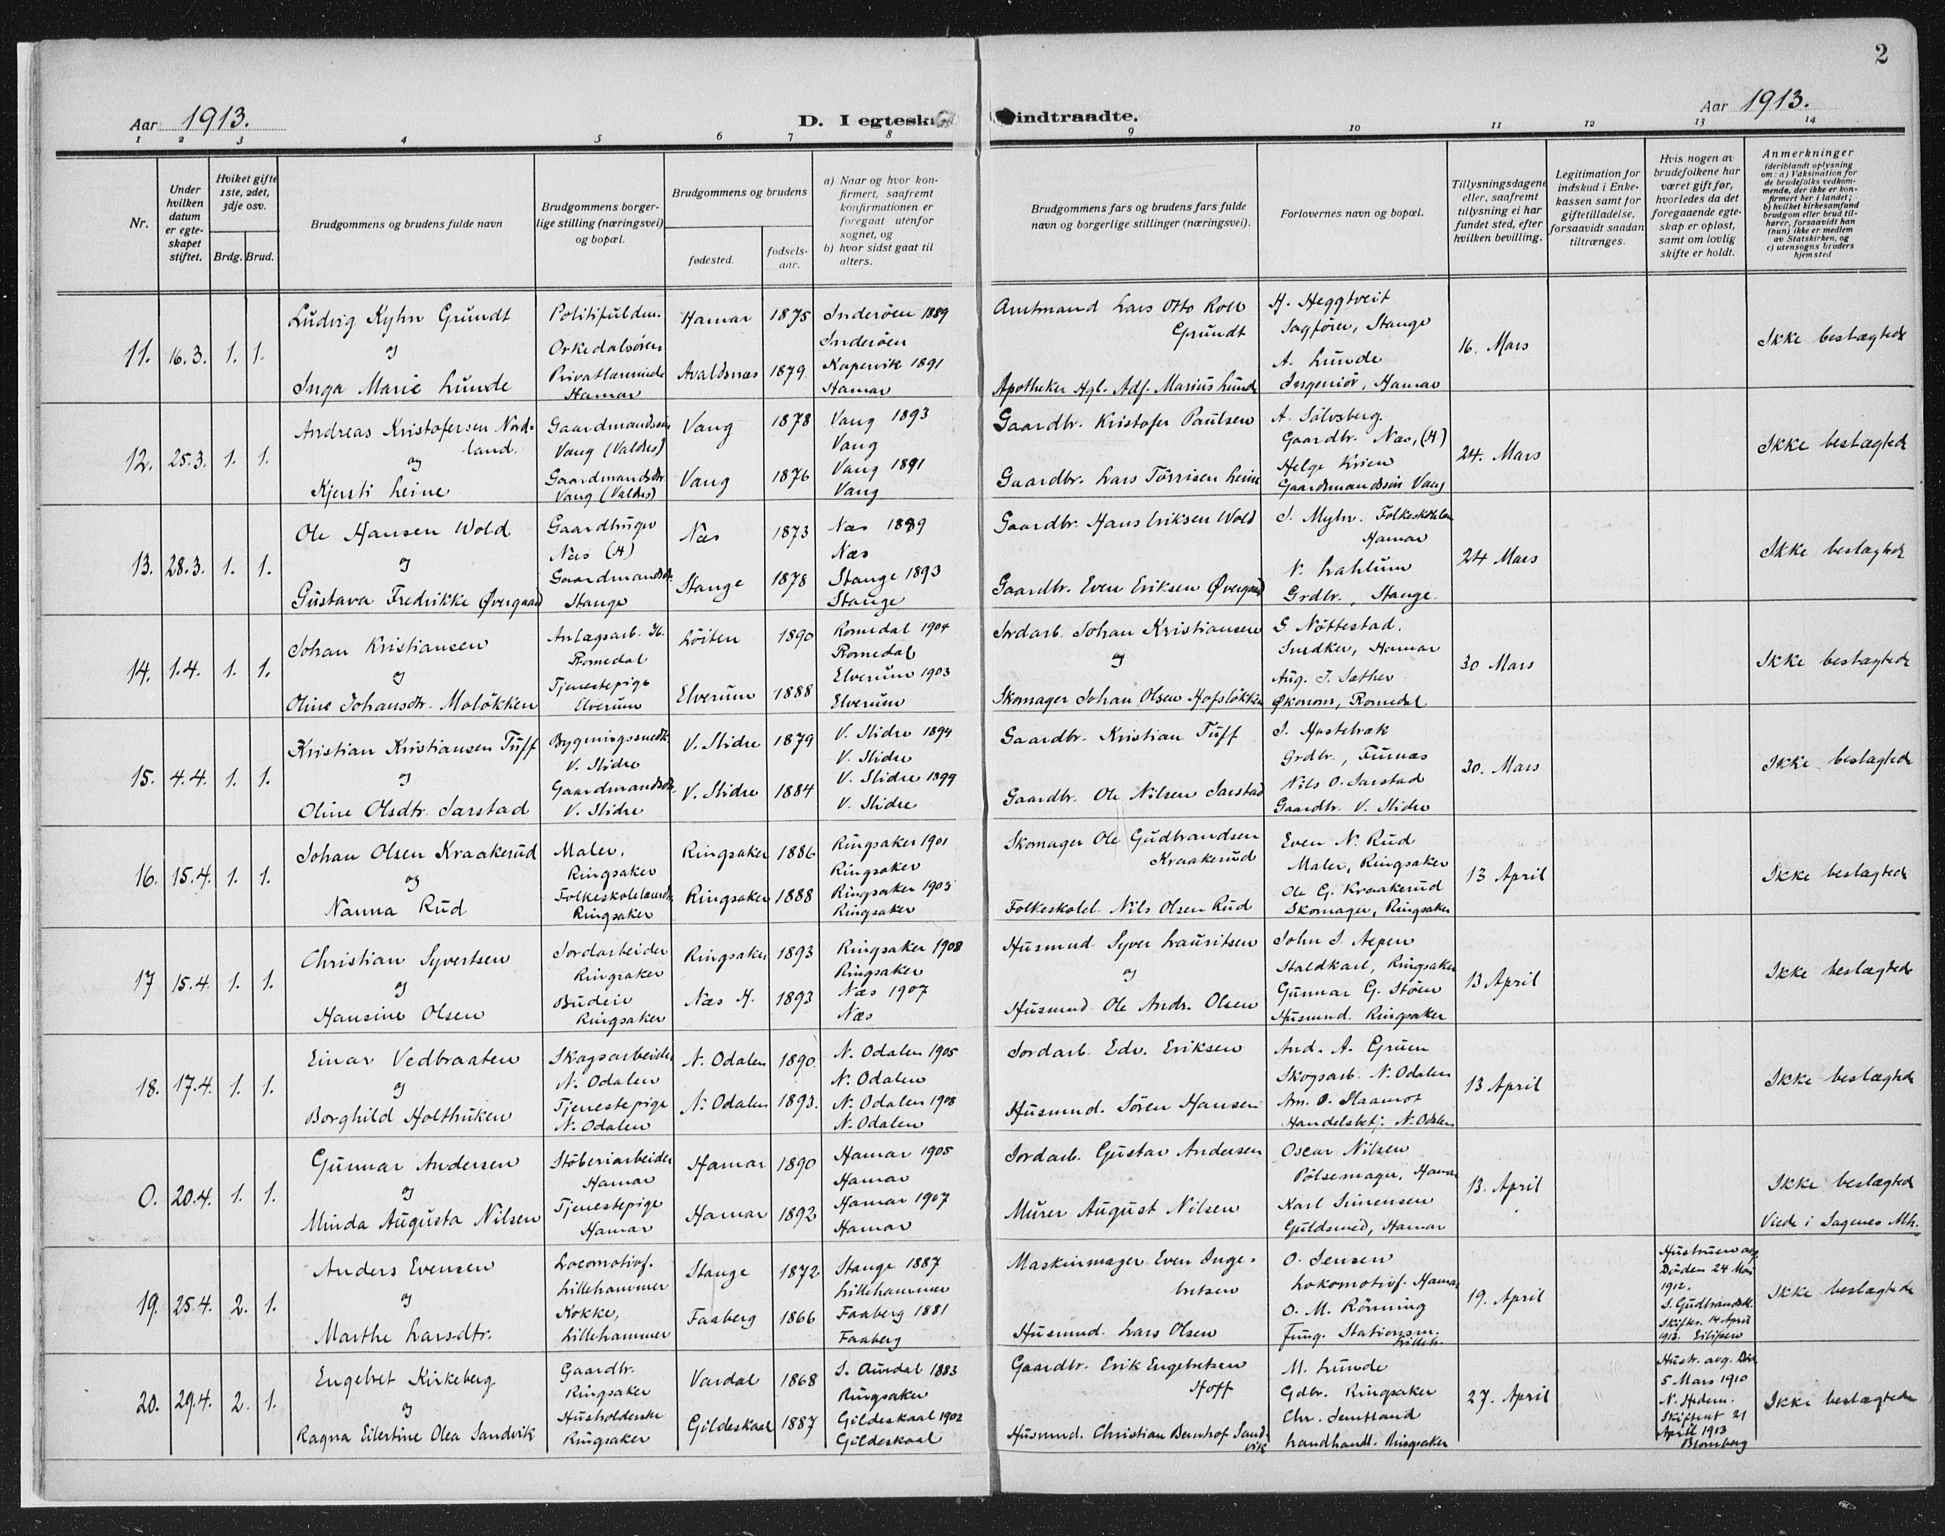 2
Aar 1913.
D. I egteska
indtraadte.
Aar 1913.
1 2 3 4 5 6 7 8 9 10 11 12 13 14
Nr.
Under hvilken datum er egteskapet stiftet.
Hvilket gifte 1ste, 2det, 3dje osv.
Brdg. Brud.
Brudgommens og brudens fulde navn
Brudgommens borgerlige stilling (næringsvei) og bopæl.
Brudgommens og brudens
fødested.
fødselsaar.
a) Naar og hvor konfirmert, saafremt konfirmationen er foregaat utenfor sognet, og
b) hvor sidst gaat til alters.
Brudgommens fars og brudens fars fulde navn og borgerlige stillinger (næringsvei).
Forlovernes navn og bopæl.
Tillysningsdagene eller, saafremt tillysning ei har fundet sted, efter hvilken bevilling.
Legitimation for indskud i Enkekassen samt for giftetilladelse, forsaavidt saadan tiltrænges.
Hvis nogen av brudefolkene har været gift før, hvorledes da det foregaaende egteskap er opløst, samt om lovlig skifte er holdt.
Anmerkninger
(deriblandt oplysning om: a) Vaksination for de brudefolks vedkommende, der ikke er konfirmert her i landet; b) hvilket kirkesamfund brudgom eller brud tilhører, forsaavidt han (hun) ikke er medlem av Statskirken, og c) utensogns bruders hjemsted
11. 16.3. 1. 1.
Ludvig Kyhn Grundt
og
Inga Marie Lunde
Politifuldm.
Orkedalsøren
Privatlærerinde
Hamar
Hamar 1875
Avaldsnæs 1879.
Inderøen 1889
Inderøen
Kopervik 1891
Hamar
Amtmand Lars Otto Roll
Grundt
Apotheker Hgl. Adf. Marius Lunde
H. Heggtveit
Sagfører, Stange
A. Lunde
Ingeniør, Hamar
16. Mars
Ikke beslægtede
12. 25.3. 1. 1.
Andreas Kristofersen Nordland.
og
Kjersti Leine
Gaardmandssøn
Vang (Valdes)
Gaardmandsdtr.
Vang (Valdes)
Vang 1878
Vang 1876
Vang 1893
Vang
Vang 1891
Vang
Gaardbr. Kristofer Paulsen
Gaardbr. Lars Torrisen Leine
A. Sølvsberg
Gaardbr. Næs, (H)
Helge Kvien
Gaardmandssøn Vang
24. Mars
Ikke beslægtede
13. 28.3. 1. 1.
Ole Hansen Wold
og
Gustava Fredrikke Øvergaard
Gaardbruger
Næs (H)
Gaardmandsdtr.
Stange
Næs 1873
Stange 1878
Næs 1889
Næs
Stange 1893
Stange
Gaardbr. Hans Eriksen Wold
Gaardbr. Even Eriksen Øvergaard
J. Myhr. Folkeskolelær
Hamar
N. Lahlum
Grdbr., Stange.
24 Mars
Ikke beslægtede
14. 1.4. 1. 1.
Johan Kristiansen
og
Oline Johansdtr. Moløkken
Anlægsarb.
Romedal
Tjenestepige
Elverum
Løiten 1890
Elverum 1888
Romedal 1904
Romedal
Elverum 1903
Elverum
Jordarb. Johan Kristiansen
og
Skomager Johan Olsen Hofsløkken
G. Nøttestad.
Snedker, Hamar
Aug. J. Sæther
Økonom, Romedal
30 Mars
Ikke beslægtede
15. 4.4. 1. 1.
Kristian Kristiansen Tuff
og
Oline Olsdtr. Jarstad
Bygningssnedk.
V. Slidre
Gaardmandsdtr.
V. Slidre
V. Slidre 1879
V. Slidre 1884
V. Slidre 1894
V. Slidre
V. Slidre 1899
V. Slidre
Gaardbr. Kristian Tuff
Gaardbr. Ole Nilsen Jarstad
J. Hostebak
Grdbr., Furnæs
Nils O. Jarstad
Gaardbr. V. Slidre
30. Mars
Ikke beslægtede
16. 15.4. 1. 1.
Johan Olsen Kraakerud
og
Nanna Rud
Maler,
Ringsaker
Folkeskolelærerinde
Ringsaker
Ringsaker 1886
Ringsaker 1888
Ringsaker 1901
Ringsaker
Ringsaker 1903
Ringsaker
Skomager Ole Gudbrandsen
Kraakerud
Folkeskolel. Nils Olsen Rud
Even N. Rud
Maler, Ringsaker
Ole G. Kraakerud
Skomager, Ringsaker
13 April
Ikke beslægtede
17 15.4. 1. 1.
Christian Syvertsen
og
Hansine Olsen
Jordarbeider
Ringsaker
Budeie
Ringsaker
Ringsaker 1893
Næs H. 1893
Ringsaker 1908
Ringsaker
Næs 1907
Næs
Husmnd. Syver Lauritsen
og
Husmnd. Ole Andr. Olsen
John J. Aspen
Staldkarl, Ringsaker
Gunnar G. Støen
Husmnd. Ringsaker
13 April
Ikke beslægtede
18. 17.4. 1. 1.
Einar Vedbraaten
og
Borghild Holthuken
Skogsarbeider
N. Odalen
Tjenestepige
N. Odalen
N. Odalen 1890
N. Odalen 1893.
N. Odalen 1905
N. Odalen
N. Odalen 1908
N. Odalen
Jordarb. Edv. Eriksen
Husmnd. Søren Hansen
And. A. Gruen
Skogsarb. N. Odalen
Arn. O. Slaamot
Handelsbet., N. Odalen
13 April
Ikke beslægtede
0. 20.4. 1. 1.
Gunnar Andersen
og
Minda Augusta Nilsen
Støberiarbeider
Hamar
Tjenestepige
Hamar
Hamar 1890
Hamar 1892
Hamar 1905
Hamar
Hamar 1907
Hamar
Jordarb. Gustav Andersen
Murer August Nilsen
Oscar Nilsen
Pølsemager, Hamar
Karl Simensen
Guldsmed, Hamar
13. April
Ikke beslægtede
Viede i Sagenes Mh.
19. 25.4. 2. 1.
Anders Evensen
og
Marthe Larsdtr.
Locomotivf.
Lillehammer
Kokke,
Lillehammer
Stange 1872
Faaberg 1866
Stange 1887
Lillehammer
Faaberg 1881
Faaberg
Maskinmager Even Ingebretsen
Husmnd. Lars Olsen
O. Jensen
Lokomotivf. Hamar
O. M. Rønning
Fung. Stationsm.
Lilleh.
19. April
Hustruen avg.
Døden 24 Mai
1912.
S. Gudbrandsdl.
Skifter. 14 April
1913. Eilifsen
Ikke beslægtede
20. 29.4. 2. 1.
Engebret Kirkeberg
og
Ragna Eilertine Olea Sandvik
Gaardbr.
Ringsaker
Husholderske
Ringsaker
Vardal 1868
Gildeskaal 1887
S. Aurdal 1883
Ringsaker
Gildeskaal 1902
Gildeskaal
Gaardbr. Erik Engebretsen
Hoff
Husmnd. Christian Bernhof Sandvik
M. Lunde
Gdbr. Ringsaker
Chr. Jemtland
Landhandl. Ringsaker
27. April
Hustr. avg. Død
5 Mars 1910
N. Hedem.
Skifteret 21
April 1913
Blomberg
Ikke beslægtede